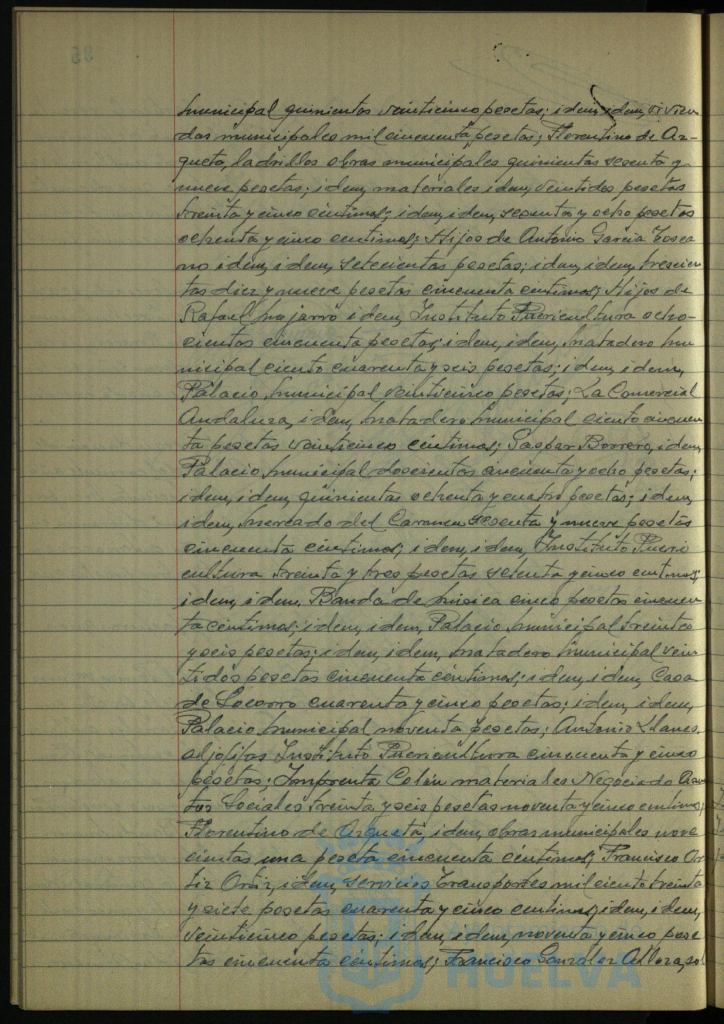 municipal quinientas veinticinco pesetas; idem, idem, vivien
das municipales mil cincuenta pesetas; Florentino de Az-
queta, ladrillos obras municipales quinientas sesenta y
nueve pesetas; idem, materiales idem, veintidos pesetas
treinta y cinco céntimos; idem, idem, sesenta y ocho pesetas
ochenta y cinco centimos; Hijos de Antonio García Tosca
no idem, idem, setecientas pesetas; idem, idem, trescien
tas diez y nueve pesetas cincuenta centimos; Hijos de
Rafael Najarro idem, Instituto Puericultura ocho-
cientas cincuenta pesetas; idem, idem, Matadero mu
nicipal ciento cuarenta y seis pesetas; idem, idem,
Palacio municipal veinticinco pesetas; La Comercial
Andaluza, idem, Matadero municipal ciento cincuen
ta pesetas veinticinco céntimos; Gaspar Borrero, idem,
Palacio municipal doscientas cincuenta y ocho pesetas;
idem, idem, quinientas ochenta y cuatro pesetas; idem,
idem, Mercado del Carmen sesenta y nueve pesetas
cincuenta céntimos; idem, idem, Instituto Pueri
cultura treinta y tres pesetas setenta y cinco centimos;
idem, idem, Banda de música cinco pesetas cincuen
ta céntimos; idem, idem, Palacio municipal treinta
y seis pesetas; idem, idem, Matadero municipal vein
tidós pesetas cincuenta céntimos; idem, idem, Casa
de Socorro cuarenta y cinco pesetas; idem, idem,
Palacio municipal noventa pesetas; Antonio Llanes
aljofifas Instituto Puericultura cincuenta y cinco
pesetas; Imprenta Colón materiales Negociado
Sociales treinta y seis pesetas noventa y cinco centimos;
Florentino de Azqueta, idem, obras municipales nove
cientas una peseta cincuenta céntimos; Francisco Or
tiz Ortiz, idem, servicios Transportes mil ciento treinta
y siete pesetas cuarenta y cinco centimos; idem, idem,
veinticinco pesetas; idem, idem, noventa y cinco pese
tas cincuenta céntimos; Francisco González
HUELVA